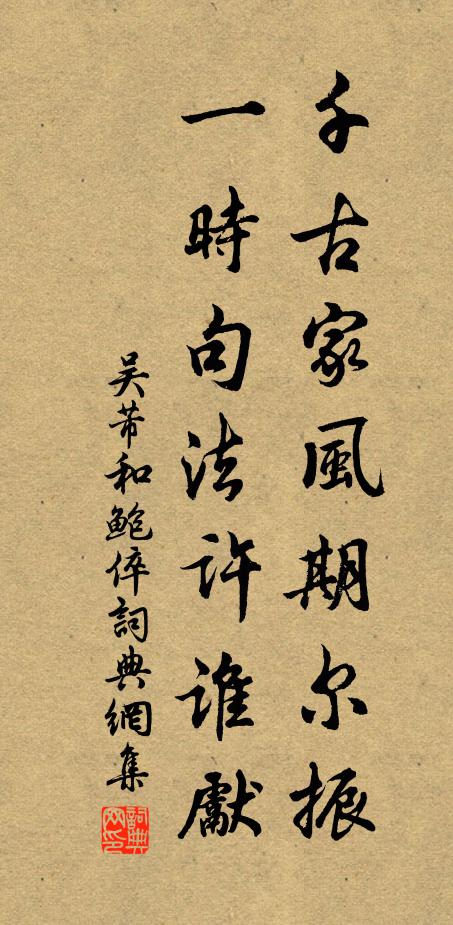 千古家風期尔振
一時句法許誰獻
吴芾和鮑倅詞典網集
詞典網印